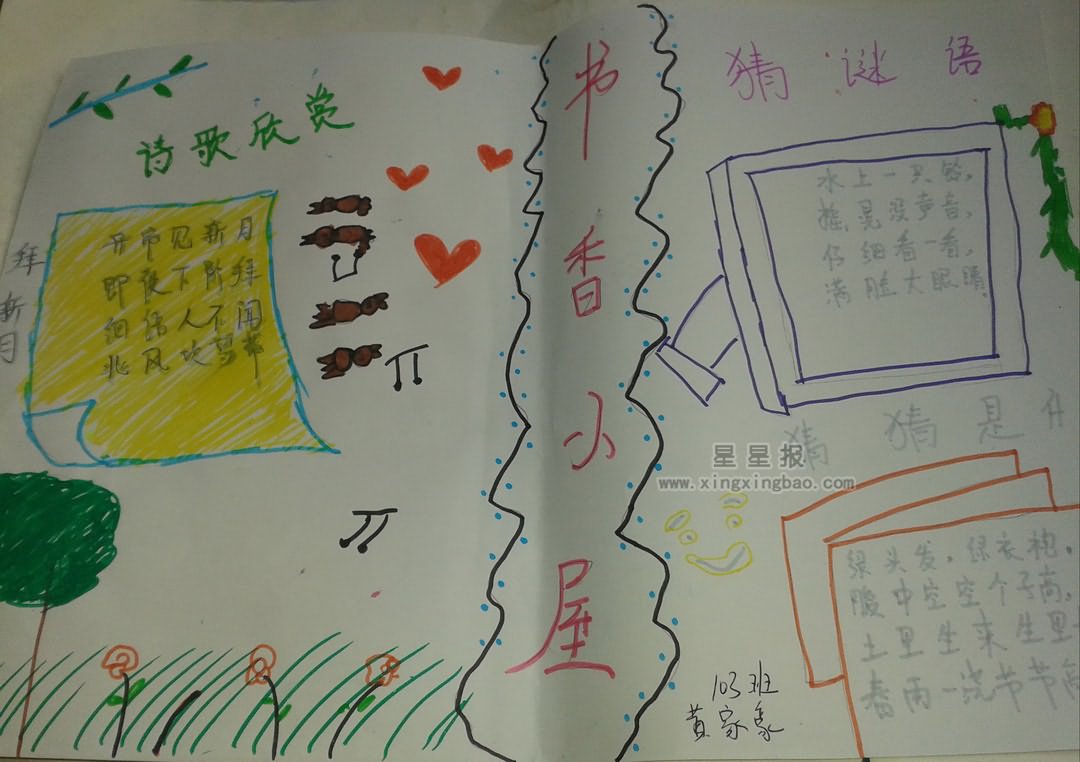 诗歌欣赏
拜新月
开帘见新月
即夜下阶拜
细语人不闻
北风吹裙带
书香小屋
猜谜语
水上一只铃，
摇晃没声音，
仔细看一看，
满脸大眼睛
猜猜是什
星星报
www.xingxingbao.com
绿头发，绿衣袍，
腹中空空个子高，
土里生来
春雨一浇节节
103班
黄家象